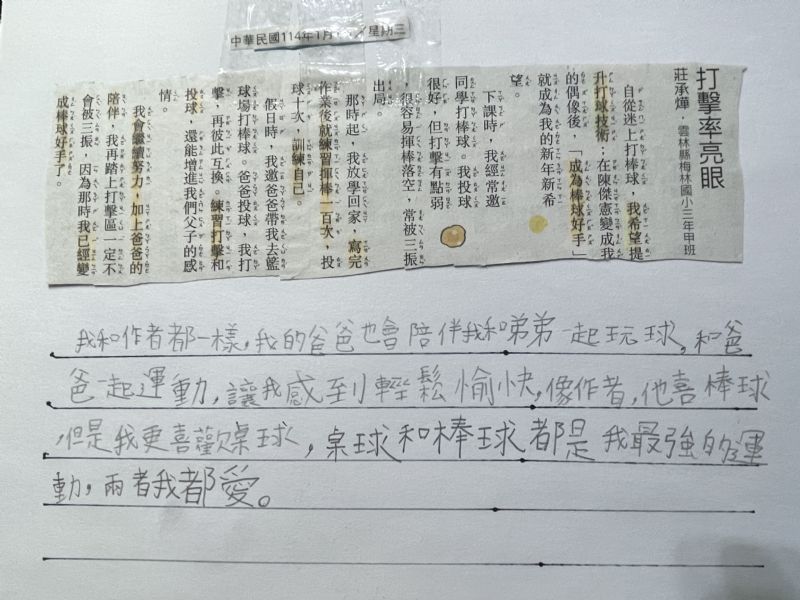 中華民國114年1月 星期三
打擊率亮眼
莊承燁．雲林縣梅林國小三年甲班
自從迷上打棒球，我希望提
升打球技術；在陳傑憲變成我
的偶像後，「成為棒球好手」
就成為我的新年新希
望。
下課時，我經常邀
同學打棒球。我投球
很好，但打擊有點弱
，很容易揮棒落空，常被三振
出局。
那時起，我放學回家，寫完
作業後就練習揮棒一百次，投
球十次，訓練自己。
假日時，我邀爸爸帶我去籃
球場打棒球。爸爸投球，我打
擊，再彼此互換。練習打擊和
投球，還能增進我們父子的感
情。
我會繼續努力，加上爸爸的
陪伴，我再踏上打擊區一定不
會被三振，因為那時我已經變
成棒球好手了。
我和作者都一樣，我的爸爸也會陪伴我和弟弟一起玩球，和爸
爸一起運動，讓我感到輕鬆愉快，像作者，他喜棒球
，但是我更喜歡桌球，桌球和棒球都是我最強的運
動，兩者我都愛。